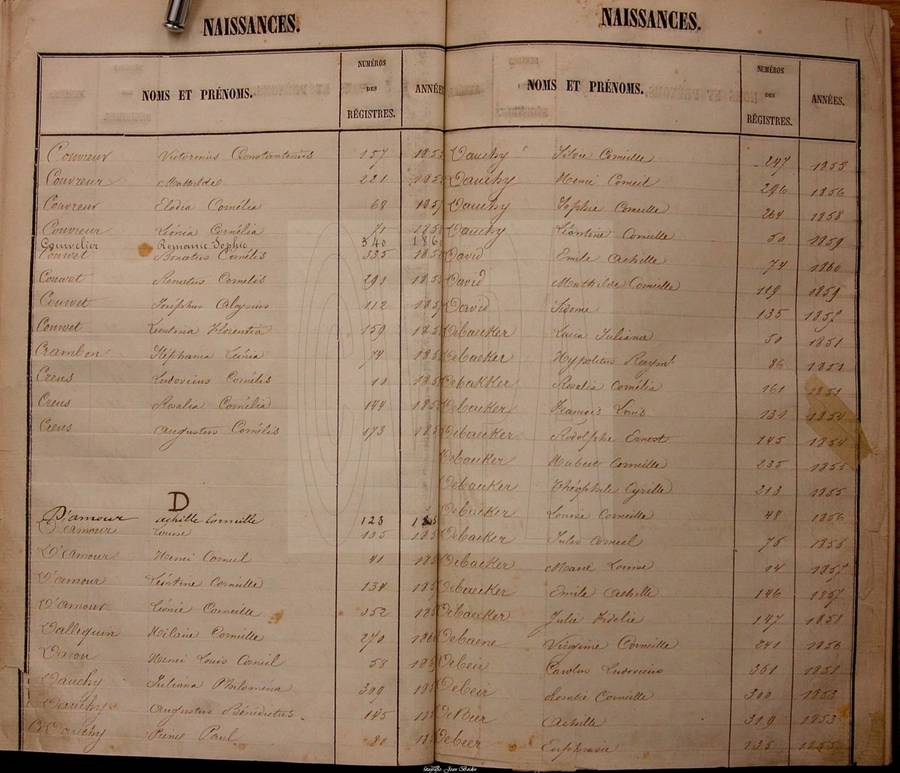 NAISSANCES.
NOMS ET PRÉNOMS. NUMÉROS DES RÉGISTRES. ANNÉES
Couvreur Victorinus Constantinus 157 185
Couvreur Mathilde 221 185
Couvreur Elodia Cornélia 68 1857
Couvreur Léonia Cornélia 71 1858
Couvelier Remanie Sophie 340 186
Couvet Donatus Cornélis 335 185
Couvet Renatus Cornélis 291 185
Couvet Josephus Aloysius 112 185
Couvet Leontina Florentia 159 185
Crambon Stéphania Léonia 74 185
Creus Ludovicus Cornélis 11 185
Creus Rosalia Cornélia 144 185
Creus Augustus Cornélis 173 185
D
D'amour Achille Corneille 123 185
D'amour Louise 135 185
D'Amour Henri Corneil 41 185
D'amour Léontine Corneille 134 185
D'amour Léonie Corneille 352 185
Dallequin Hilaire Corneille 270 186
Henri Louis Corneil 58 185
Dauchy Juliana Philomina 300 185
Dauchy Augustus Bénédictus 145 185
Dauchy Remy Paul 31 185
NAISSANCES.
NOMS ET PRÉNOMS. NUMÉROS DES RÉGISTRES. ANNÉES.
Dauchy Silvie Corneille 247 1855
Dauchy Henri Corneil 296 1856
Dauchy Sophie Corneille 264 1858
Dauchy Léontine Corneille 50 1859
David Emile Achille 74 1860
David Mathilde Corneille 119 1859
David Sidonie 135 1857
Debaecker Lucia Juliana 50 1851
Debaecker Hypolitus Raym 86 1851
Debakker Rosalia Cornélia 161 1851
Debaecker François Louis 131 1854
Debaecker Rodolphe Ernest 145 1854
Debaecker Hubert Corneille 235 1855
Debaecker Théophile Cyrille 213 1855
Debaecker Louise Corneille 48 1856
Debaecker Jules Corneil 75 1856
Debaecker Marie Louise 14 1857
Debaecker Emile Achille 146 1857
Debaecker Julie Fidelie 147 1858
Debaene Virginie Corneille 241 1856
Debeir Carolus Ludovicus 361 1851
Debeir Corneille 300 1853
DeBeir Achille 310 1853
Debeir Euphrasie 135 1855